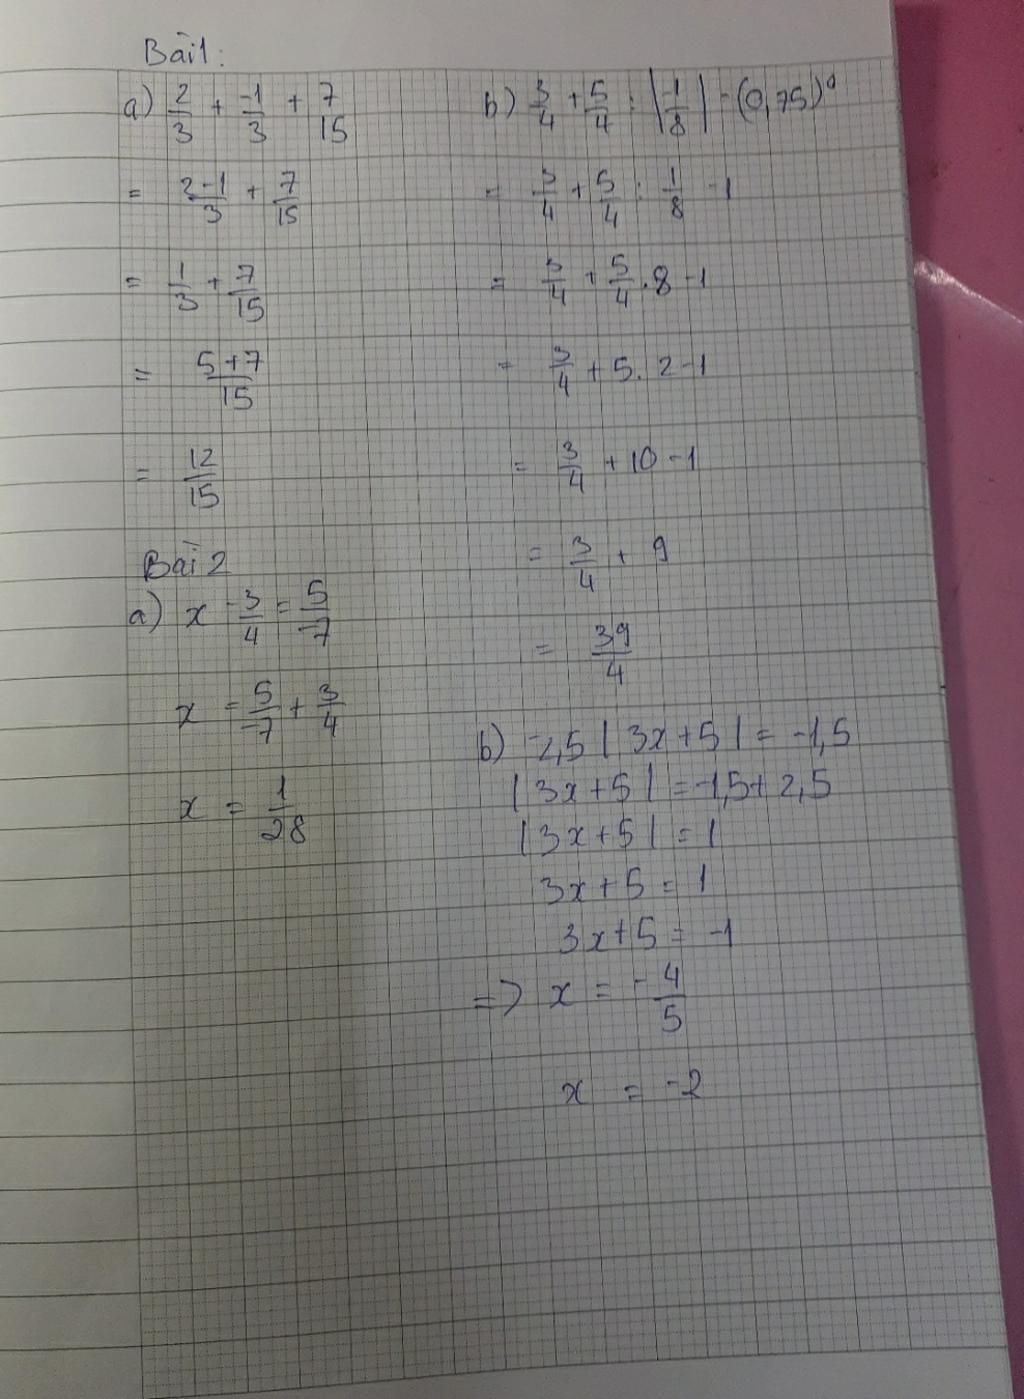 Bài 1:
a) 2/3 + -1/3 + 7/15
= 2-1/3 + 7/15
= 1/3 + 7/15
= 5+7/15
= 12/15
b) 3/4 + 5/4 : |-1/8| - (0,75)⁰
= 3/4 + 5/4 : 1/8 - 1
= 3/4 + 5/4 . 8 - 1
= 3/4 + 5. 2 - 1
= 3/4 + 10 - 1
= 3/4 + 9
= 39/4
Bài 2
a) x - 3/4 = 5/-7
x = 5/-7 + 3/4
x = 1/28
b) -2,5 | 3x+5 | = -1,5
| 3x+5 | = -1,5+ 2,5
| 3x+5 | = 1
3x+5 = 1
3x+5 = -1
=> x = - 4/5
x = -2